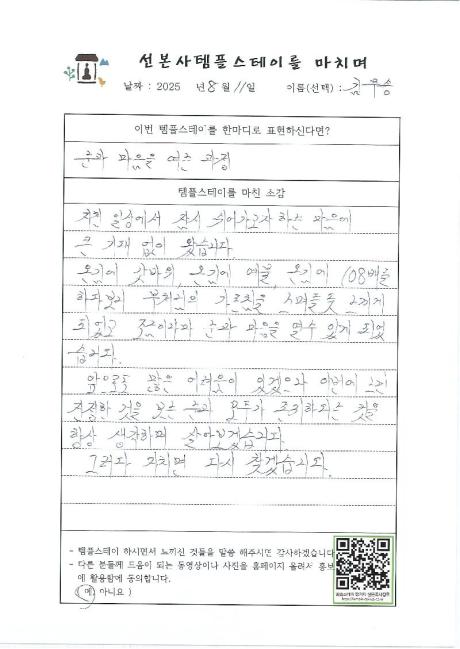 선본사템플스테이를 마치며
날짜 : 2025 년 8월 11일 이름(선택) : 김무승
이번 템플스테이를 한마디로 표현하신다면?
눈과 마음을 여는 과정
템플스테이를 마친 소감
지친 일상에서 잠시 쉬어가고자 하는 마음에
큰 기대 없이 왔습니다.
온김에 갓바위, 온김에 예불, 온김에 108배를
하다보니 부처님의 가르침을 스며들듯 느끼게
되었고 조금이라마 눈과 마음을 열수 있게 되었
습니다.
앞으로도 많은 어려움이 있겠으나 이번에 느낀
진실한 것을 보는 눈과 모두가 존귀하다는 것을
항상 생각하며 살아보겠습니다.
그러다 지치면 다시 찾겠습니다.
- 템플스테이 하시면서 느끼신 것들을 말씀 해주시면 감사하겠습니다
- 다른 분들께 도움이 되는 동영상이나 사진을 홈페이지 올려서 홍보
에 활용함에 동의합니다.
(예, 아니요)